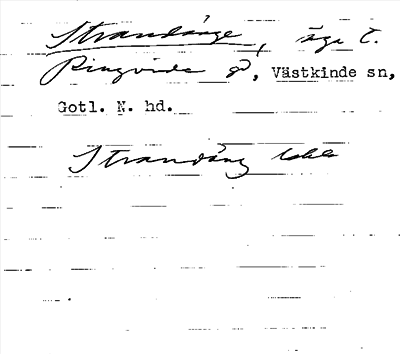 Strandänge, äga t.
Ringvide g, Västkinde sn,
Gotl. N. hd.
Strandäng